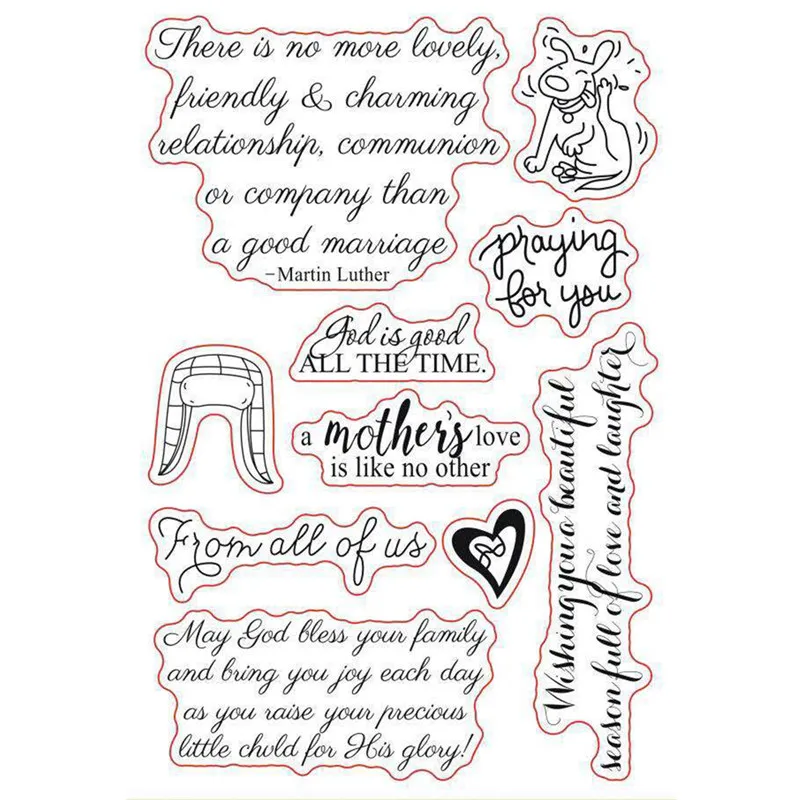 There is no more lovely,
friendly & charming
relationship, communion
or company than
a good marriage
-Martin Luther
praying
for you
God is good
ALL THE TIME.
a mother's love
is like no other
Wishing you a beautiful
season full of love and laughter
From all of us
May God bless your family
and bring you joy each day
as you raise your precious
little chvld for His glory!